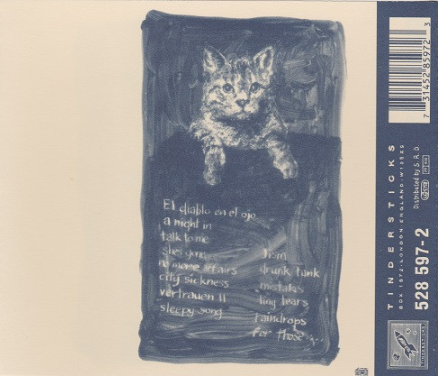 El diablo en el ojo
a night in
talk to me
she's gone
no more affairs
city sickness
vertrauen II
sleepy song
Jism
drunk tank
mistakes
tiny tears
raindrops
for those...
TINDERSTICKS
BOX 1572·LONDON·ENGLAND·W1
Distributed by S.R.D.
528 597-2
7 31452 85972 3